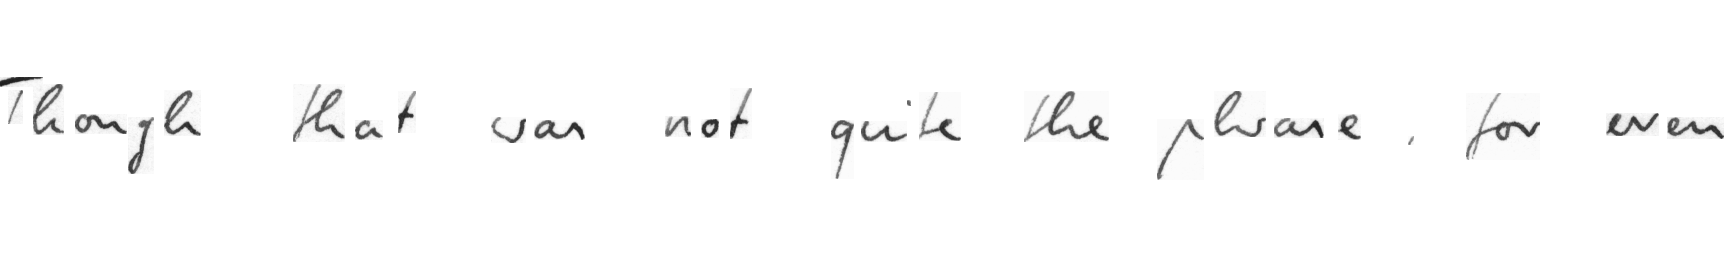 Though that was not quite the phrase, for even